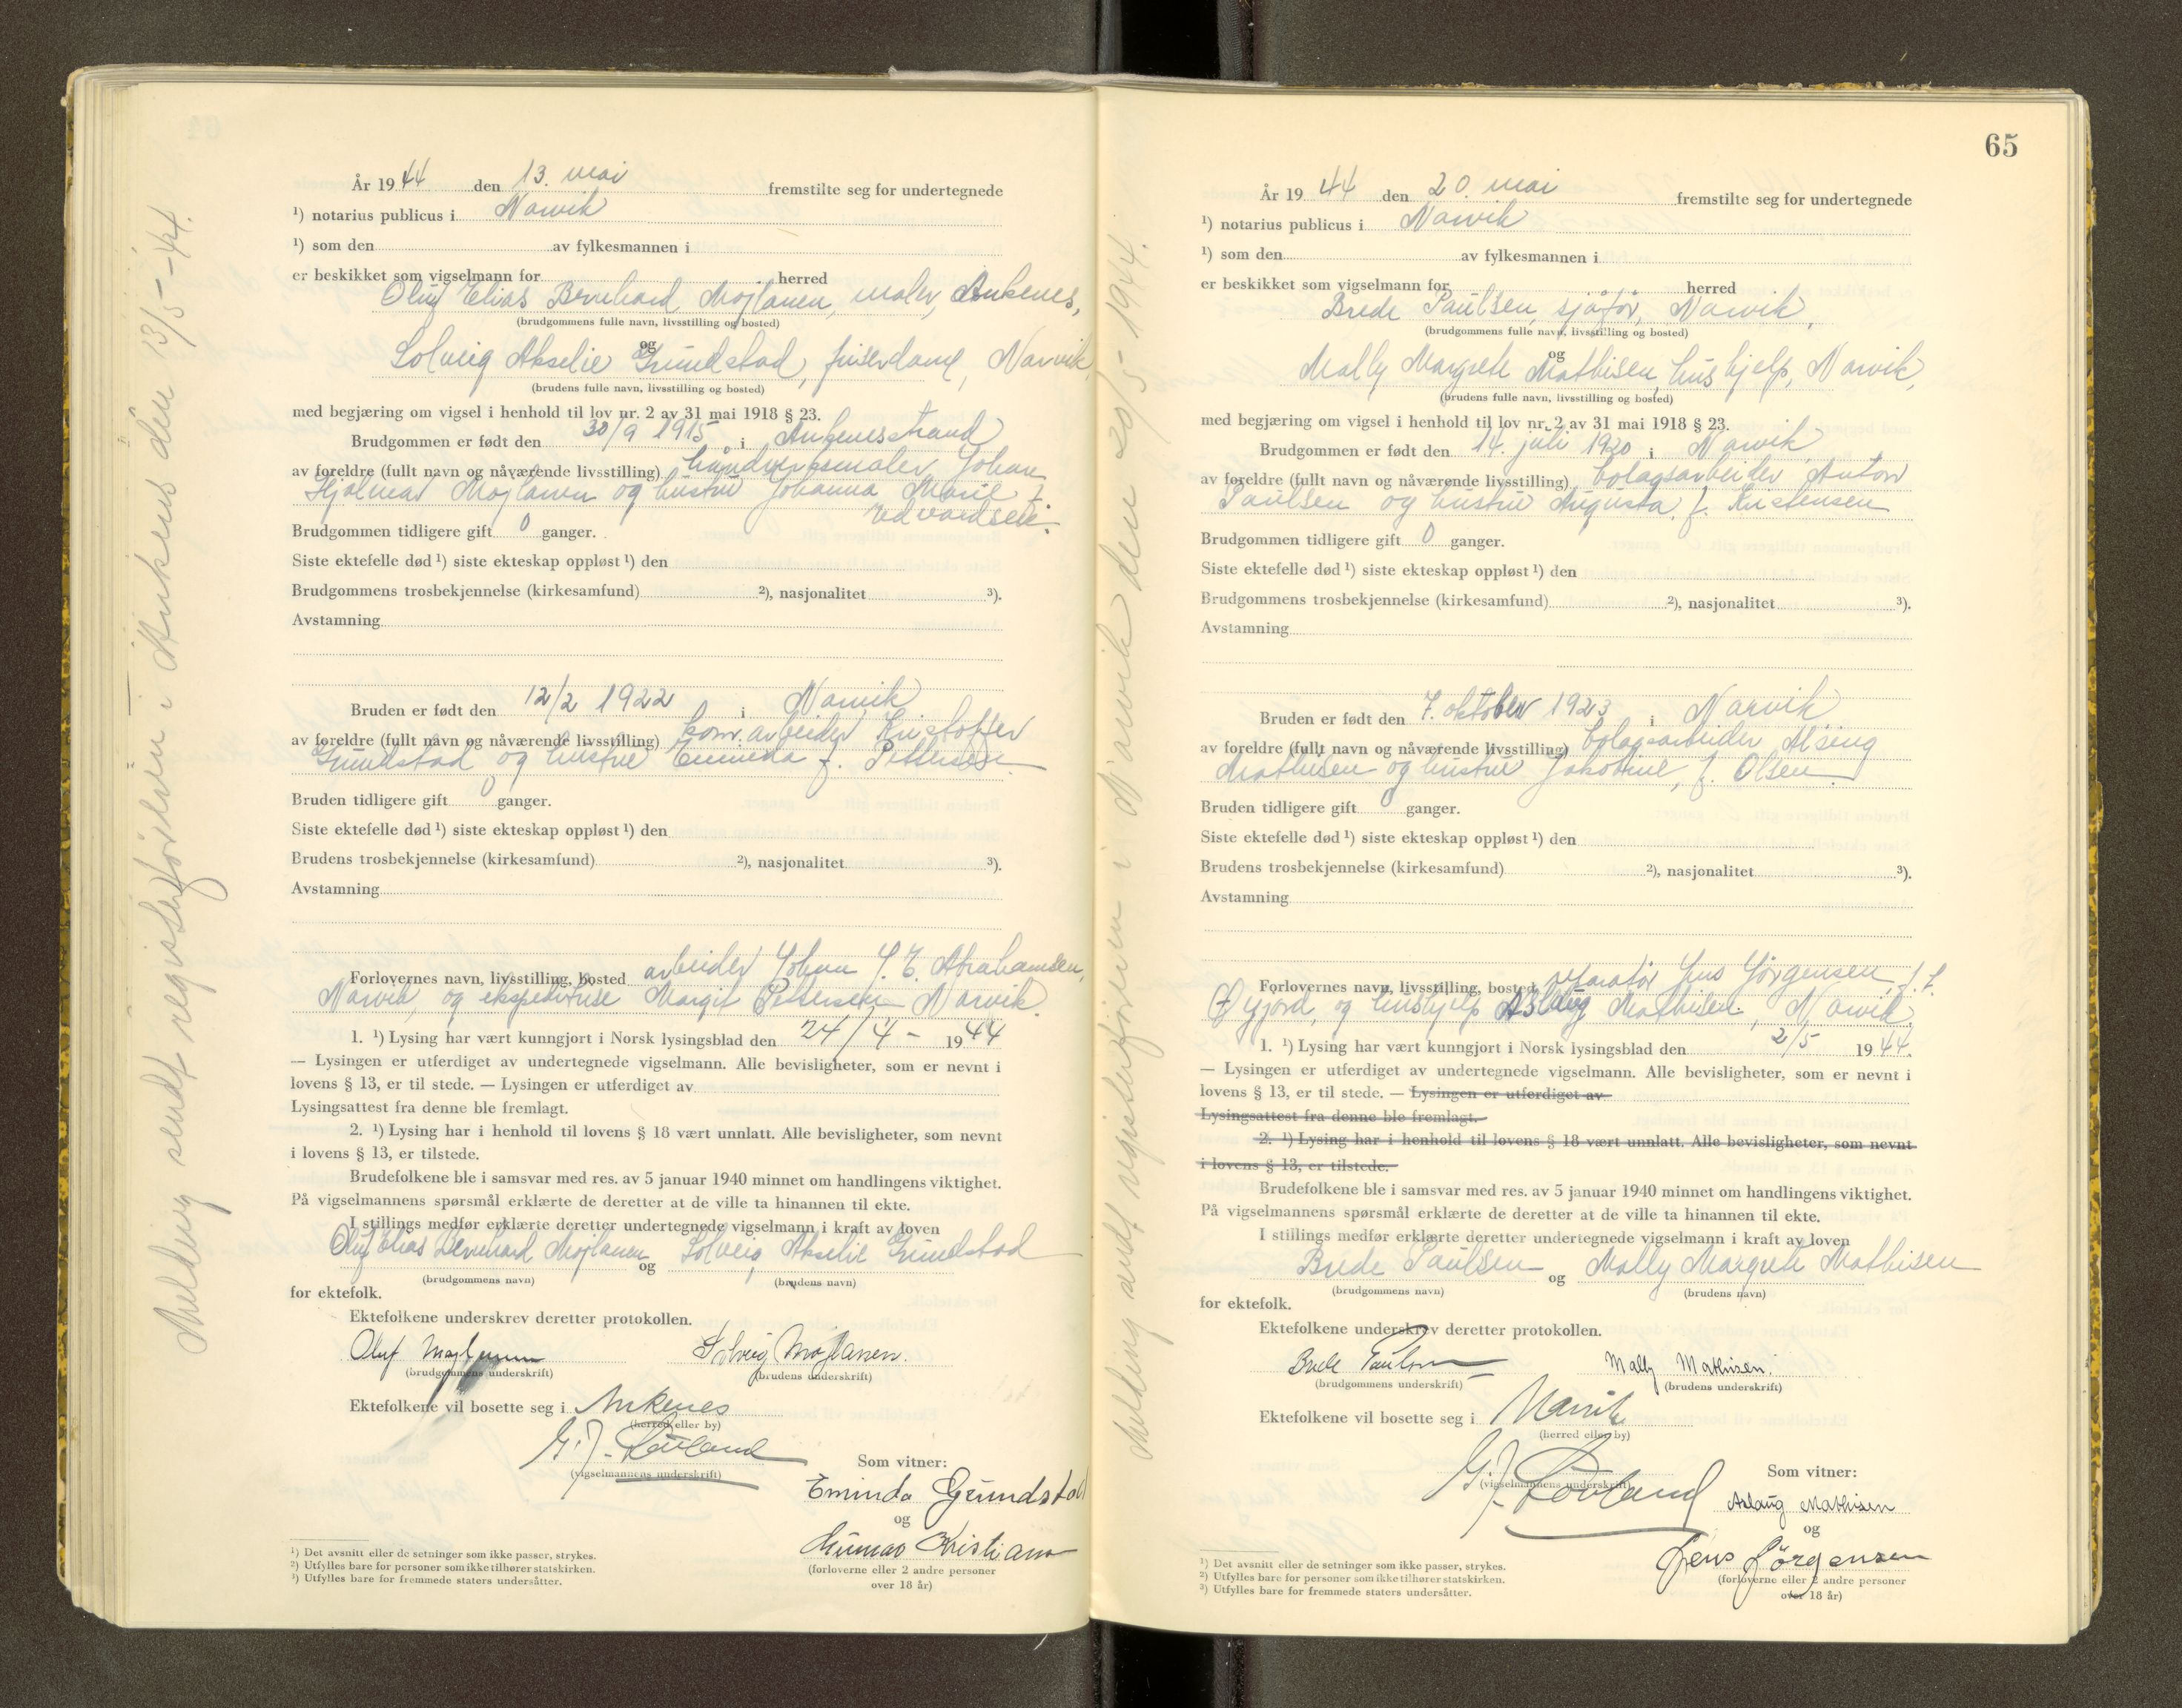 År 1944 den 13. mai fremstilte seg for undertegnede
¹) notarius publicus i Narvik
¹) som den av fylkesmannen i
er beskikket som vigselmann for herred
Oluf Elias Bernhard Mojlanen, maler, Ankenes,
(brudgommens fulle navn, livsstilling og bosted)
og
Solveig Akselie Grundstad, friserdame, Narvik,
(brudens fulle navn, livsstilling og bosted)
med begjæring om vigsel i henhold til lov nr. 2 av 31 mai 1918 § 23.
Brudgommen er født den 30/9 1915 i Ankenesstrand
av foreldre (fullt navn og nåværende livsstilling) håndverksmaler Johan
Hjalmar Mojlanen og hustru Johanna Marie f.
Edvardsen.
Brudgommen tidligere gift 0 ganger.
Siste ektefelle død ¹) siste ekteskap oppløst ¹) den
Brudgommens trosbekjennelse (kirkesamfund) ²), nasjonalitet ³).
Avstamning
Bruden er født den 12/2 1922 i Narvik
av foreldre (fullt navn og nåværende livsstilling) kom. arbeider Kristoffer
Grundstad og hustru Eminda f. Pettersen
Bruden tidligere gift 0 ganger.
Siste ektefelle død ¹) siste ekteskap oppløst ¹) den
Brudens trosbekjennelse (kirkesamfund) ²), nasjonalitet ³).
Avstamning
Forlovernes navn, livsstilling, bosted arbeider Johan J. E. Abrahamsen,
Narvik, og ekspeditrise Margit Pettersen Narvik.
1. ¹) Lysing har vært kunngjort i Norsk lysingsblad den 24/4 - 1944
— Lysingen er utferdiget av undertegnede vigselmann. Alle bevisligheter, som er nevnt i
lovens § 13, er til stede. — Lysingen er utferdiget av
Lysingsattest fra denne ble fremlagt.
2. ¹) Lysing har i henhold til lovens § 18 vært unnlatt. Alle bevisligheter, som nevnt
i lovens § 13, er tilstede.
Brudefolkene ble i samsvar med res. av 5 januar 1940 minnet om handlingens viktighet.
På vigselmannens spørsmål erklærte de deretter at de ville ta hinannen til ekte.
I stillings medfør erklærte deretter undertegnede vigselmann i kraft av loven
Oluf Elias Bernhard Mojlanen og Solveig Akselie Grundstad
(brudgommens navn) (brudens navn)
for ektefolk.
Ektefolkene underskrev deretter protokollen.
Oluf Mojlanen Solveig Mojlanen.
(brudgommens underskrift) (brudens underskrift)
Ektefolkene vil bosette seg i Ankenes
(herred eller by)
G. J. Løvland
(vigselmannens underskrift)
Som vitner:
Eminda Grundstad
og
Kristians
(forloverne eller 2 andre personer
over 18 år)
¹) Det avsnitt eller de setninger som ikke passer, strykes.
²) Utfylles bare for personer som ikke tilhører statskirken.
³) Utfylles bare for fremmede staters undersåtter.
Melding sendt registerføreren i Ankenes den 13/5 - 44.
65
År 1944 den 20. mai fremstilte seg for undertegnede
¹) notarius publicus i Narvik
¹) som den av fylkesmannen i
er beskikket som vigselmann for herred
Brede Paulsen, sjåfør, Narvik,
(brudgommens fulle navn, livsstilling og bosted)
og
Mally Margrete Mathisen, hushjelp, Narvik,
(brudens fulle navn, livsstilling og bosted)
med begjæring om vigsel i henhold til lov nr. 2 av 31 mai 1918 § 23.
Brudgommen er født den 14. juli 1920 i Narvik
av foreldre (fullt navn og nåværende livsstilling) bolagsarbeider Anton
Paulsen og hustru Augusta f. Kristensen
Brudgommen tidligere gift 0 ganger.
Siste ektefelle død ¹) siste ekteskap oppløst ¹) den
Brudgommens trosbekjennelse (kirkesamfund) ²), nasjonalitet ³).
Avstamning
Bruden er født den 7. oktober 1923 i Narvik
av foreldre (fullt navn og nåværende livsstilling) bolagsarbeider Alsing
Mathisen og hustru Jakobine, f. Olsen.
Bruden tidligere gift 0 ganger.
Siste ektefelle død ¹) siste ekteskap oppløst ¹) den
Brudens trosbekjennelse (kirkesamfund) ²), nasjonalitet ³).
Avstamning
Forlovernes navn, livsstilling, bosted reparatør Jens Jørgensen,
Øyjord, og hushjelp Aslaug Mathisen, Narvik.
1. ¹) Lysing har vært kunngjort i Norsk lysingsblad den 2/5 1944.
— Lysingen er utferdiget av undertegnede vigselmann. Alle bevisligheter, som er nevnt i
lovens § 13, er til stede. — Lysingen er utferdiget av
Lysingsattest fra denne ble fremlagt.
2. ¹) Lysing har i henhold til lovens § 18 vært unnlatt. Alle bevisligheter, som nevnt
i lovens § 13, er tilstede.
Brudefolkene ble i samsvar med res. av 5 januar 1940 minnet om handlingens viktighet.
På vigselmannens spørsmål erklærte de deretter at de ville ta hinannen til ekte.
I stillings medfør erklærte deretter undertegnede vigselmann i kraft av loven
Brede Paulsen og Mally Margrete Mathisen
(brudgommens navn) (brudens navn)
for ektefolk.
Ektefolkene underskrev deretter protokollen.
Brede Paulsen Mally Mathisen.
(brudgommens underskrift) (brudens underskrift)
Ektefolkene vil bosette seg i Narvik
(herred eller by)
G. J. Løvland
(vigselmannens underskrift)
Som vitner:
Aslaug Mathisen
og
Jens Jörgensen
(forloverne eller 2 andre personer
over 18 år)
¹) Det avsnitt eller de setninger som ikke passer, strykes.
²) Utfylles bare for personer som ikke tilhører statskirken.
³) Utfylles bare for fremmede staters undersåtter.
Melding sendt registerføreren i Narvik den 20/5 - 1944.